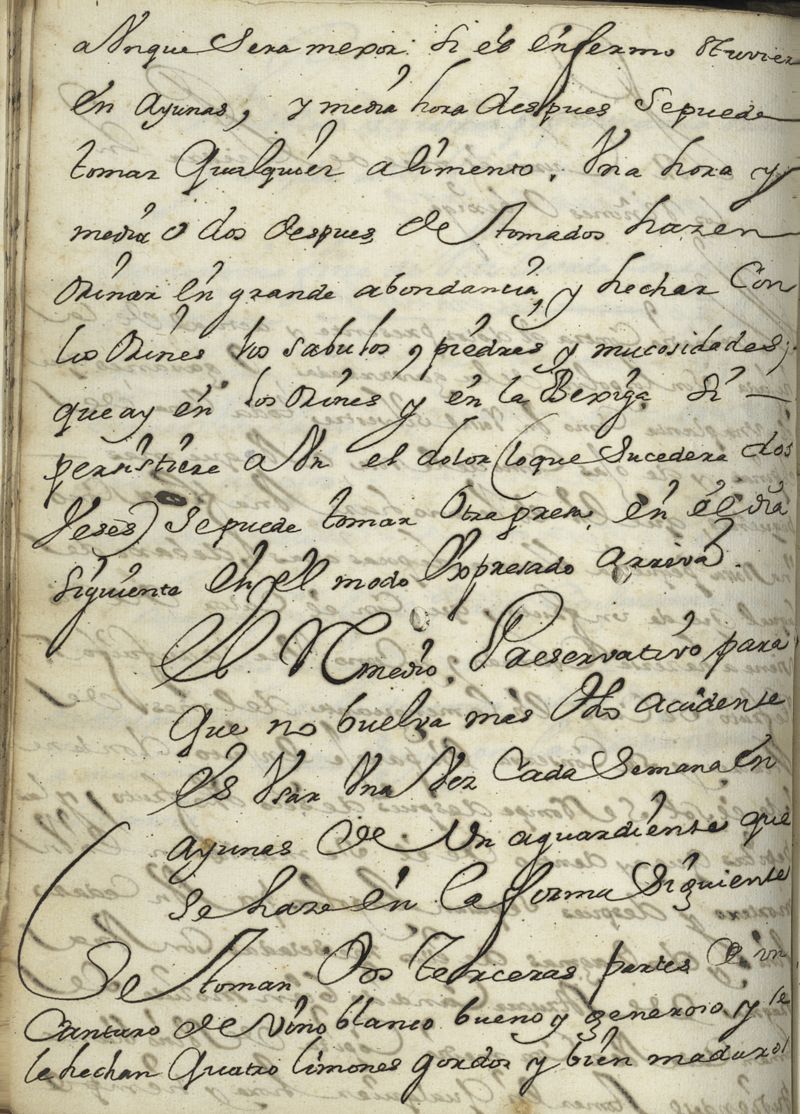 aVnque Sera mexor Si el enfermo stuvier
en Ayunas, y media hora despues Sepuede
tomar Qualquier alimento. Vna hora y
media o dos despues de Stomados hazen
Orinar en grande abondancia, y hechar Con
los Orines los Sabulos, piedras, y mucosidades,
que ay en los Rines y en la Bexiga Si —
persistiere aVn el dolor (lo que Sucedera dos
Veses) Sepuede tomar Otra presa en el dia
Siguiente en el modo Expresado arriva.
El Remedio Preservativo para
que no buelva mas Dho accidente
es Vsar Vna Vez Cada Semana en
ayunas de Vn aguardiente que
se haze en la forma Siguiente
Se Stoman Dos terceras partes de vn
Cantaro de vino blanco bueno y generoso y se
le hechan Quatro limones gordos y bien maduros